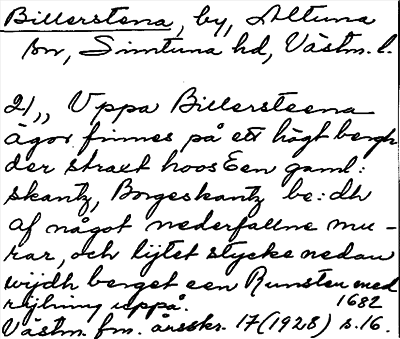 Billerstena, by, Altuna
sn, Simtuna hd, Västm. l.
21,, Uppa Billersteena
ägor finnes på ett högt bergh
der straxt hoos Een gaml:
skantz, Borgeskantz be:dh
af något nederfallne mu-
rar, och lijtet stycke nedan
wijdh berget een Runsten med
rijtning uppå. 1682
Västm. fm. årsskr. 17 (1928) s. 16.